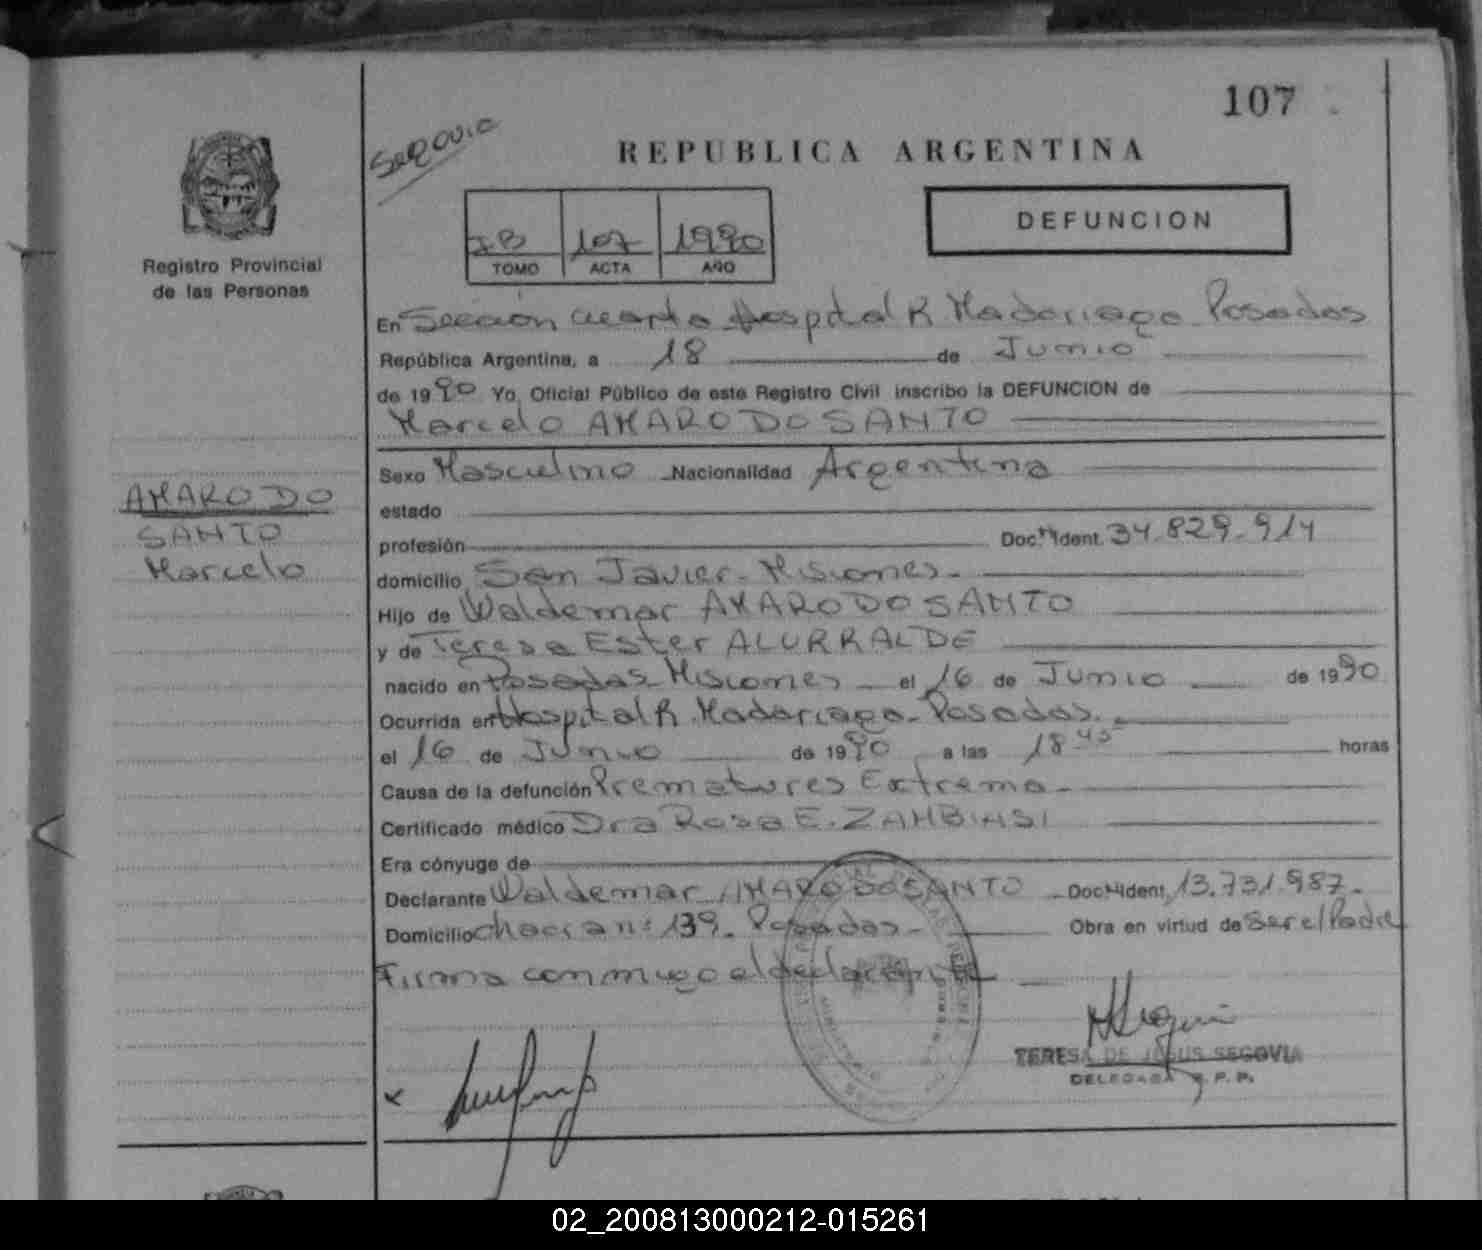 107
Segovia
REPUBLICA ARGENTINA
Registro Provincial
de las Personas
IB 107 1990
TOMO ACTA AÑO
DEFUNCION
En Sección cuarta Hospital R Madariaga Posadas
República Argentina, a 18 de Junio
de 1990 Yo, Oficial Público de este Registro Civil inscribo la DEFUNCION de
Marcelo AMARO DO SANTO
Sexo Masculino Nacionalidad Argentina
AMARO DO
SANTO
Marcelo
estado
profesión Doc. Ident. 34.829.914
domicilio San Javier - Misiones -
Hijo de Waldemar AMARO DO SANTO
y de Teresa Ester ALURRALDE
nacido en Posadas Misiones el 16 de Junio de 1990
Ocurrida en Hospital R. Madariaga - Posadas.
el 16 de Junio de 1990 a las 18 45 horas
Causa de la defunción Prematures Extrema -
Certificado médico Dra Rosa E. ZAMBIASI
Era cónyuge de
Declarante Waldemar AMARO DO SANTO Doc. Ident. 13.731.987 -
Domicilio chacra nº 139 - Posadas - Obra en virtud de Ser el Padre
Firma conmigo el declarante
x
TERESA DE JESUS SEGOVIA
DELEGADA R.P.P.
02_200813000212-015261